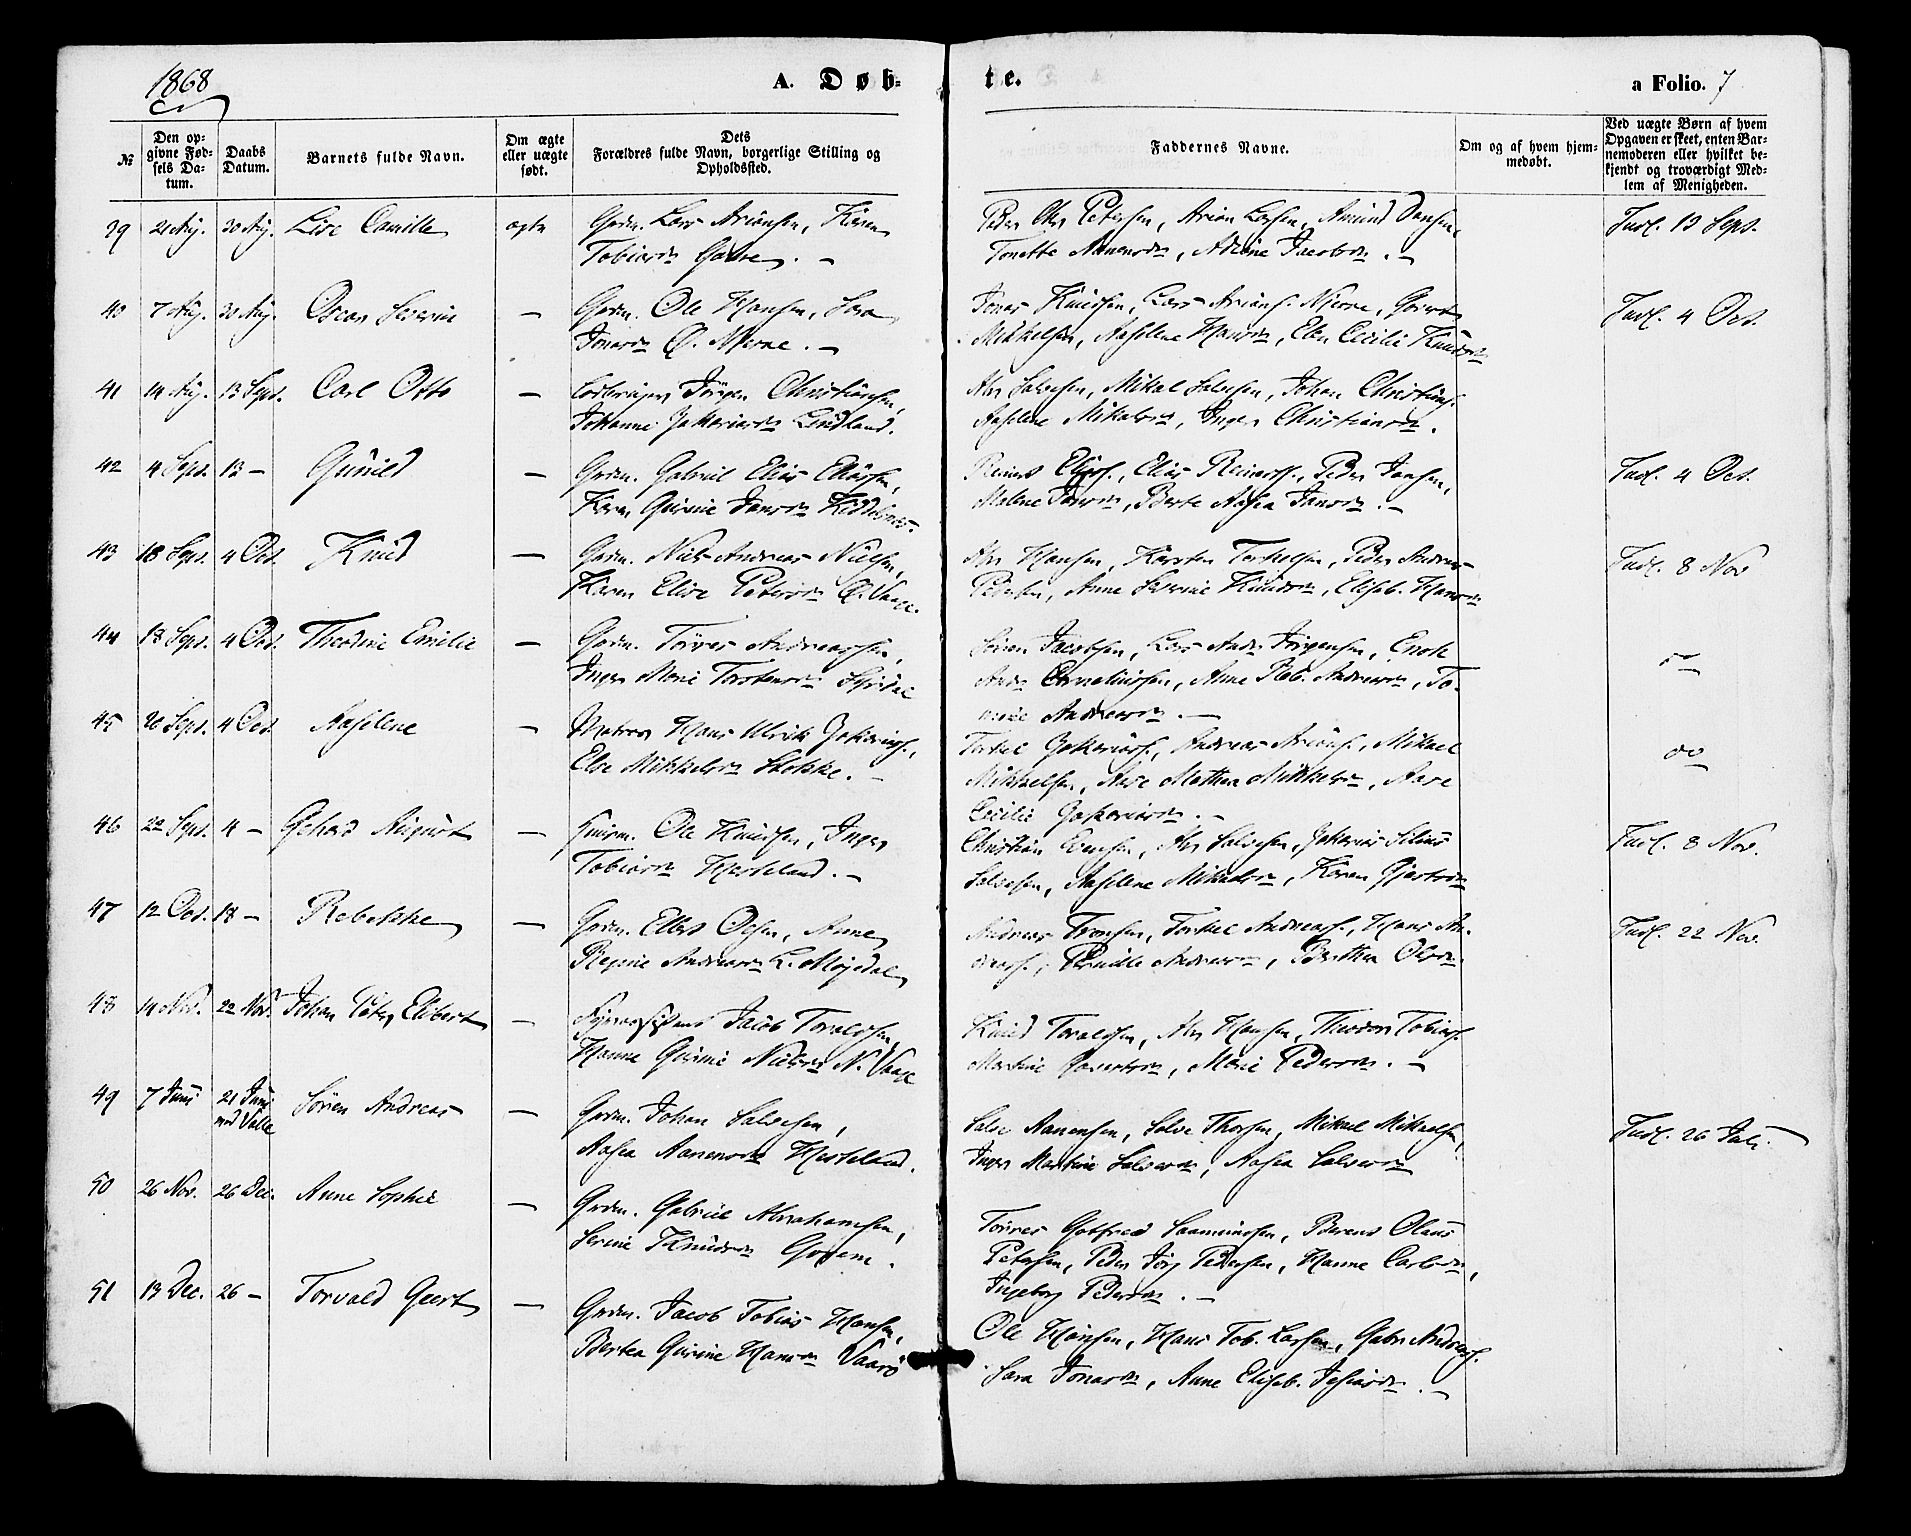 1868
A. Døb-
te.
a Folio. 7
№
Den op-
givne Fød-
sels Da-
tum.
Daabs
Datum.
Barnets fulde Navn.
Om ægte
eller uægte
født.
Dets
Forældres fulde Navn, borgerlige Stilling og
Opholdssted.
Faddernes Navne.
Om og af hvem hjem-
medøbt.
Ved uægte Børn af hvem
Opgaven er skeet, enten Bar-
nemoderen eller hvilket be-
kjendt og troværdigt Med-
lem af Menigheden.
39 21 Aug. 30 Aug. Lise Camilla ægte Grdm. Lars Ariansen, Karen
Tobiasdn
Peder Petersen, Arian Larsen, Amund
Tonette Aanensdn, Adeline Jacobsdn. —
Indl. 13 Sept.
40 7 Aug. 30 Aug. Oscar Severin — Grdm. Ole Hansen, Sara
Jonasdn Ø. Njerve. —
Jonas Knudsen, Lars Arians. Njerve,
Mikkelsen, Aaselene Hansdn, Elen Cecilie Knudsdn
Indl. 4 Oct.
41 14 Aug. 13 Sept. Carl Otto — Jørgen Christiansen,
Johanne Zakariasdn Lindland.
Salvesen, Mikal Salvesen, Johan Christians.
Aaselene Mikalsdn, Inger Christiansdn.
42 4 Sept. 13 — Gunild — Grdm. Gabriel Elias Eliassen,
Karen Gurine Jansdn
Reinert Elias., Elias Reinerts., Peder Jansen,
Malene Jansdn, Berte Aasea Jansdn. —
Indl. 4 Oct.
43 18 Sept. 4 Oct. Knud — Grdm. Niels Andreas Nielsen,
Karen Elise Petersdn Ø. Vaage.
Hansen, Karsten Terkelsen, Peder Andreas
Pedersen, Anne Severine Knudsdn, Elisab. Hansdn
Indl. 8 Nov
44 18 Sept. 4 Oct. Theodine Emilie — Grdm. Tørres Andreassen,
Inger Marie Torstensdn
Sören Jacobsen, Lars Andr. Jörgensen, Enok
Andr. Corneliussen, Anne Reb. Andreasdn, To-
Andreasdn. —
do
45 20 Sept. 4 Oct. Aaselene — Matros Hans Ulrik Zakarias.,
Else Mikkelsdn Stokke. —
Terkel Zakarias., Andreas Arians., Mikael
Mikkelsen, Mikkelsdn,
Cecilie Zakariasdn. —
do
46 22 Sept. 4 — Gehard August — Huusm. Ole Knudsen, Inger
Tobiasdn Hesteland. —
Christian Evensen, Salvesen, Zakarias
Salvesen, Aaselene Mikalsdn, Karen
Indl. 8 Nov.
47 12 Oct. 18 — Rebekke — Grdm. Ellert Olsen, Anne
Regine Andreasdn L. Møgedal
Andreas Tronsen, Terkel Andreas., Hans An-
dreas., Pernille Andreasdn, Berthea Olsdn
Indl. 22 Nov.
48 14 Nov. 22 Nov. Johan Peter Elibert — Jacob Toraldsen,
Hanne Gurine Nielsdn N. Vaage
Knud Toraldsen, Hansen, Theodor Tobias.
Martine Pedersdn. —
49 7 Juni 21 Juni
ved Valle Sören Andreas — Grdm. Johan Salvesen,
Aasea Aanensdn Hesteland.
Salve Aanensen, Salve Thorsen, Mikael Mikaelsen,
Inger Martine Salvesdn, Aasea Salvesdn
Indl. 26 Juli.
50 26 Nov. 26 Dec. Anne Sophie — Grdm. Gabriel Abrahamsen,
Serine Knudsdn
Tørres Gotfred Berent Olaus
Petersen, Peder Jörg. Pedersen, Hanne Carlsdn,
Ingeborg Pedersdn. —
51 13 Dec. 26 — Torvald Geert — Grdm. Jacob Tobias Hansen,
Bertea Gurine Hansdn Vaarø
Ole Hansen, Hans Tob. Larsen, Gabr. Andreas.
Sara Jonasdn, Anne Elisab. —